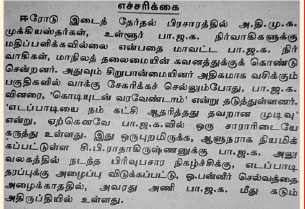 எச்சரிக்கை
ஈரோடு இடைத் தேர்தல் பிரசாரத்தில் அ.தி.மு.க.
முக்கியஸ்தர்கள், உள்ளூர் பா.ஜ.க. நிர்வாகிகளுக்கு
மதிப்பளிக்கவில்லை என்பதை மாவட்ட பா.ஜ.க. நிர்
வாகிகள், மாநிலத் தலைமையின் கவனத்துக்குக் கொண்டு
சென்றனர். அதுவும் சிறுபான்மையினர் அதிகமாக வசிக்கும்
பகுதிகளில் வாக்கு சேகரிக்கச் செல்லும்போது, பா.ஜ.க.
வினரை, 'கொடியுடன் வரவேண்டாம்' என்று தடுத்துள்ளனர்.
'எடப்பாடியை நம் கட்சி ஆதரித்தது தவறான முடிவு'
என்று, ஏற்கெனவே பா.ஜ.க.வில் ஒரு சாராரிடையே
கருத்து உள்ளது. இது ஒருபுறமிருக்க, ஆளுநராக நியமிக்
கப்பட்டுள்ள சி.பி.ராதாகிருஷ்ணனுக்கு பா.ஜ.க. அலு
வலகத்தில் நடந்த பிரிவுபசார நிகழ்ச்சிக்கு, எடப்பாடி
தரப்புக்கு அழைப்பு விடுக்கப்பட்டு, ஓ.பன்னீர் செல்வத்தை
அழைக்காததில், அவரது அணி பா.ஜ.க. மீது கடும்
அதிருப்தியில் உள்ளது.